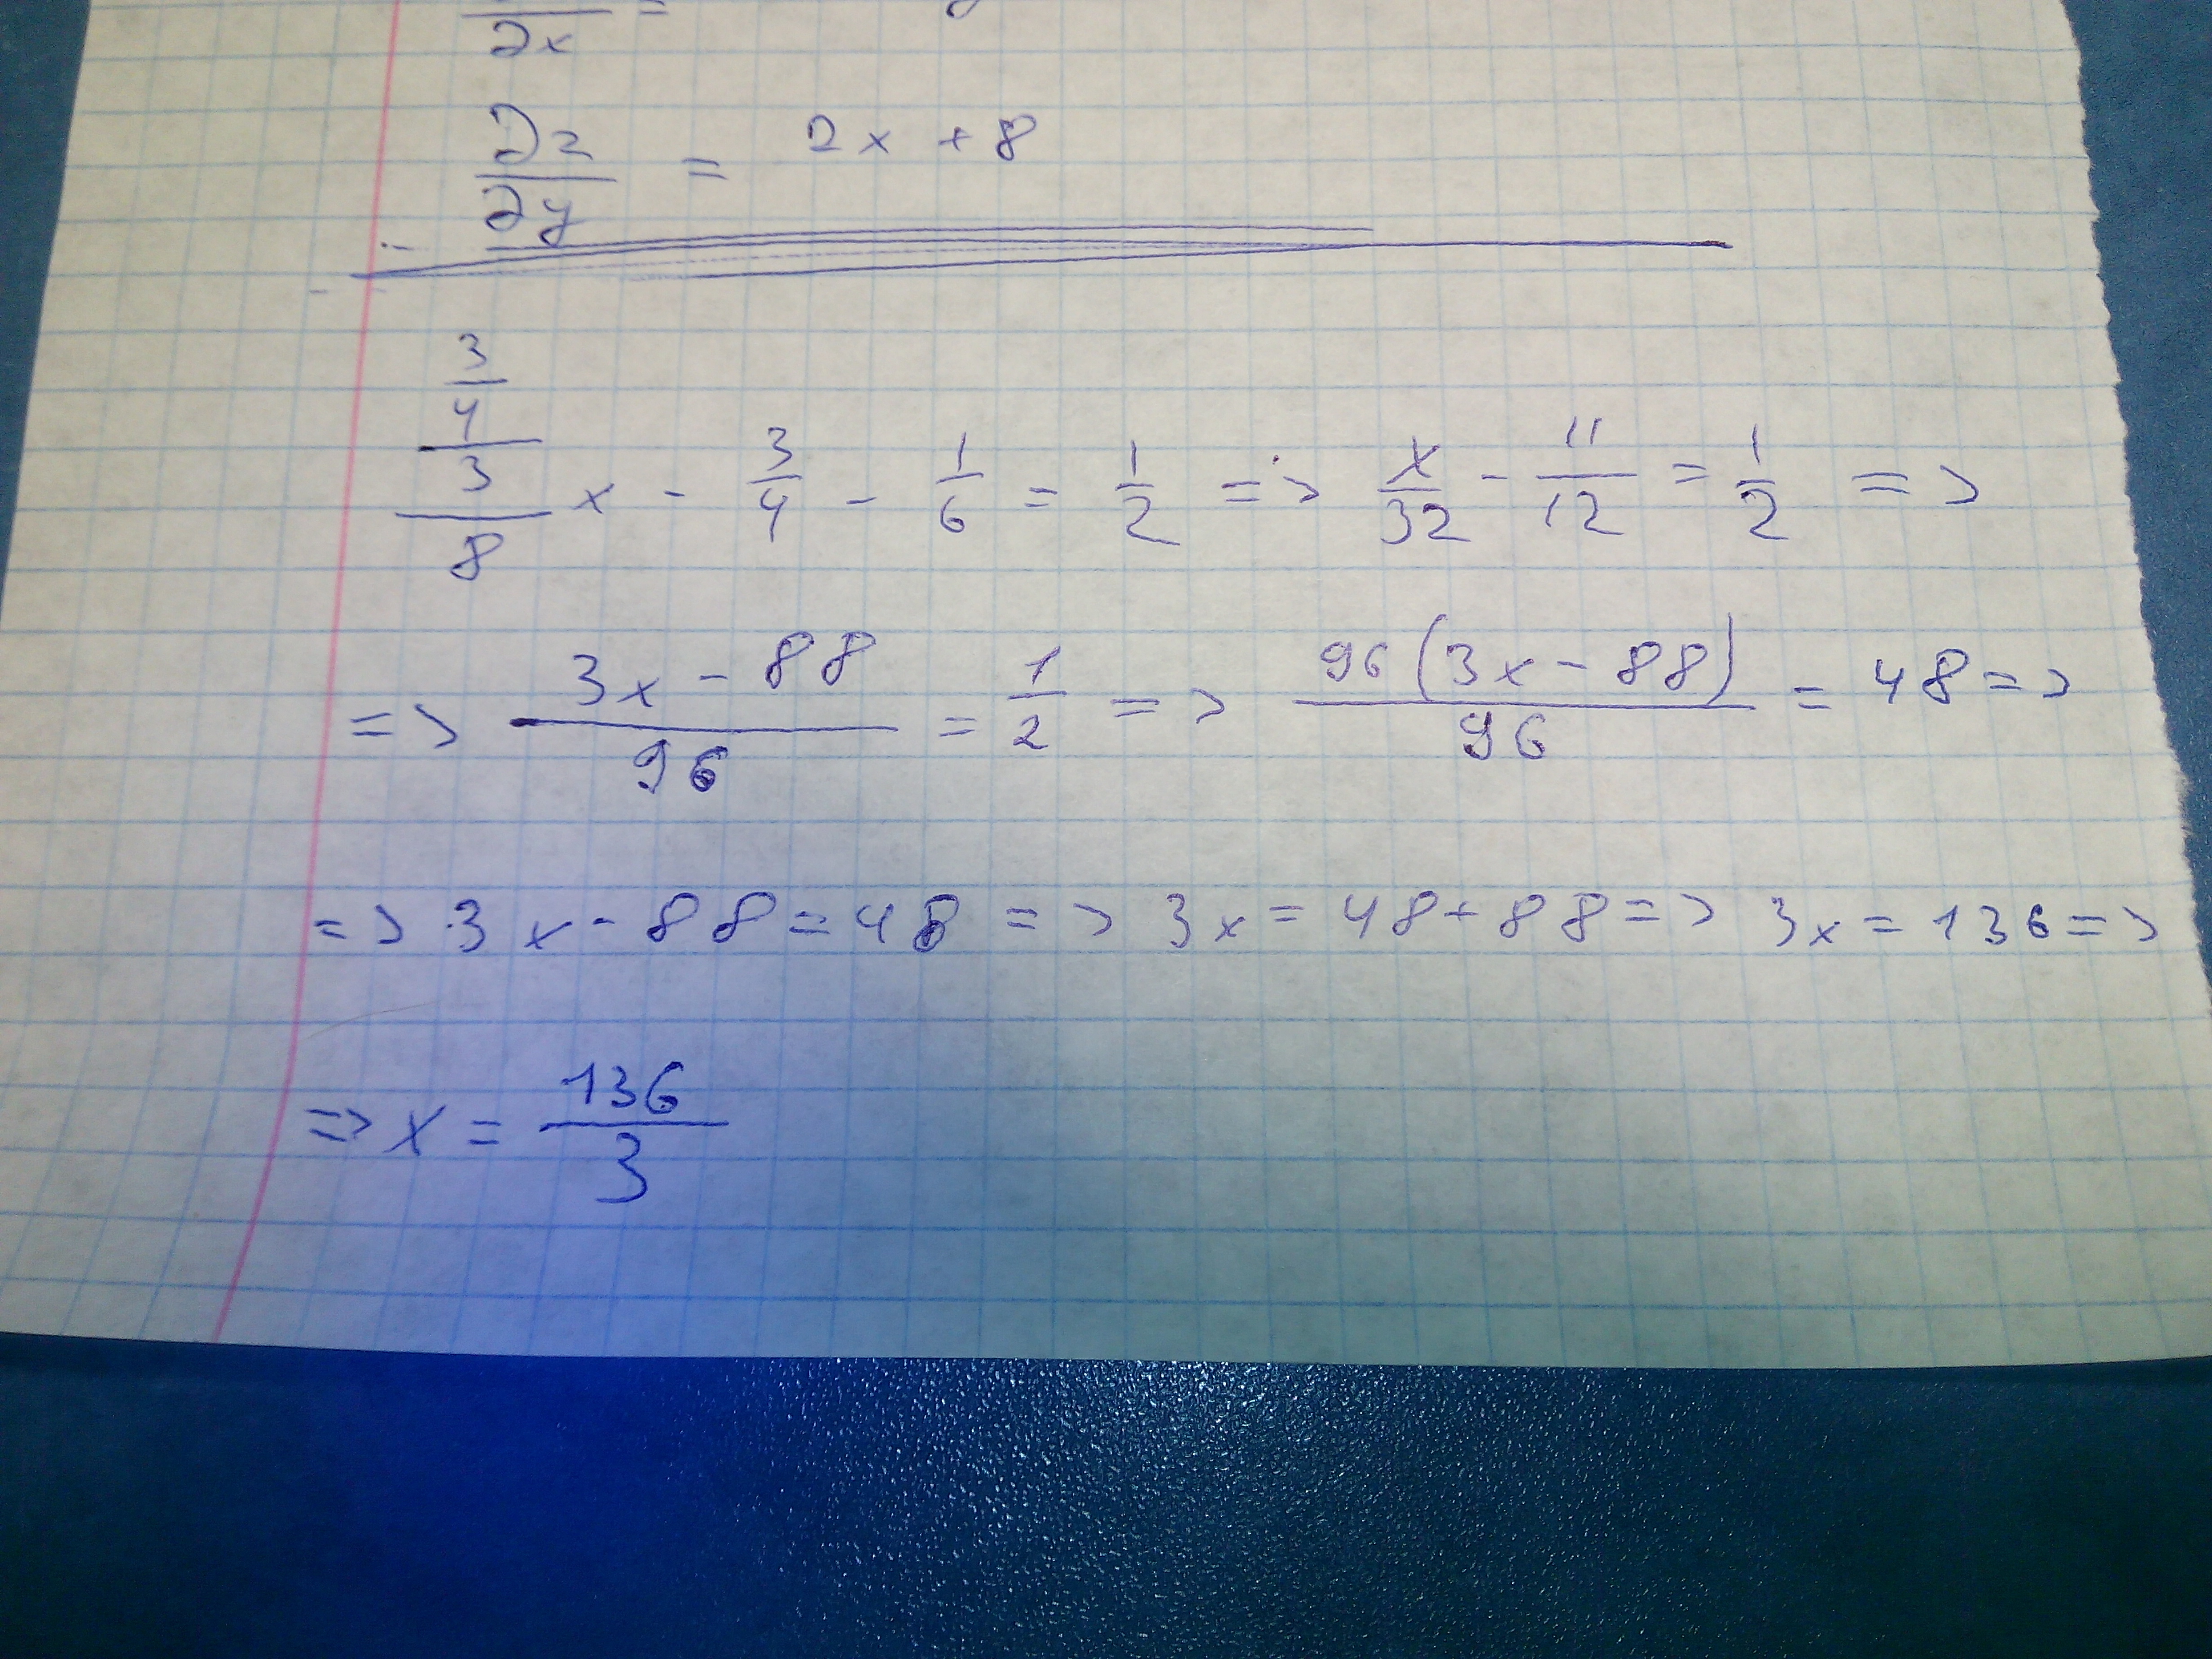 ∂x =
∂z/∂y = 2x + 8
3/4/3/8 x - 3/4 - 1/6 = 1/2 => x/32 - 11/12 = 1/2 =>
=> 3x - 88/96 = 1/2 => 96(3x - 88)/96 = 48 =>
=> 3x - 88 = 48 => 3x = 48 + 88 => 3x = 136 =>
=> x = 136/3